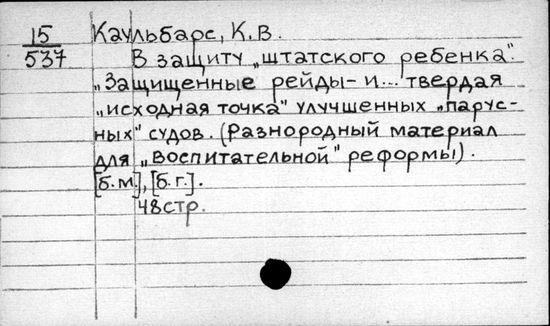 15 Каульбарс, К.В.
537 В защиту „штатского ребенка".
„Защищенные рейды - и... твердая
„исходная точка" улучшенных „парус-
ных" судов. (Разнородный материал
для „воспитательной" реформы).
[б.м.], [б.г.].
48стр.